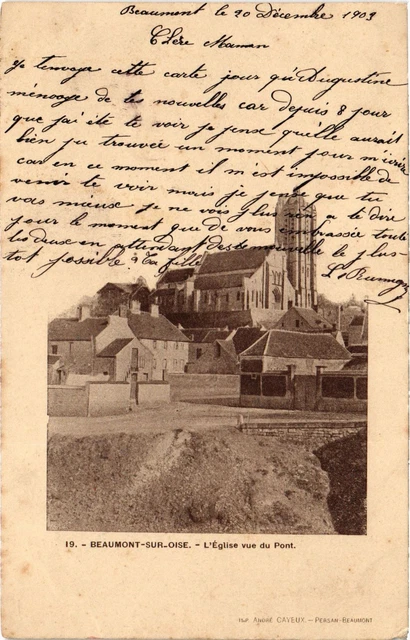 Beaumont le 20 Décembre 1903
Chère Maman
Je tenvoye cette carte jour qu'Augustine
ménvoye de tes nouvelles car depuis 8 jour
que j'ai été te voir je pense quelle aurait
bien pu trouvée un moment pour m'écrire
car en ce moment il m'est impossible de
venir te voir mais je pense que tu
vas mieux je ne vois plus rien a te dire
pour le moment que de vous embrassée toute
les deux en attendant des nouvelle le plus
tot possible à Ta fille
19. - BEAUMONT-SUR-OISE. - L'Église vue du Pont.
Imp. ANDRÉ CAYEUX. — PERSAN-BEAUMONT